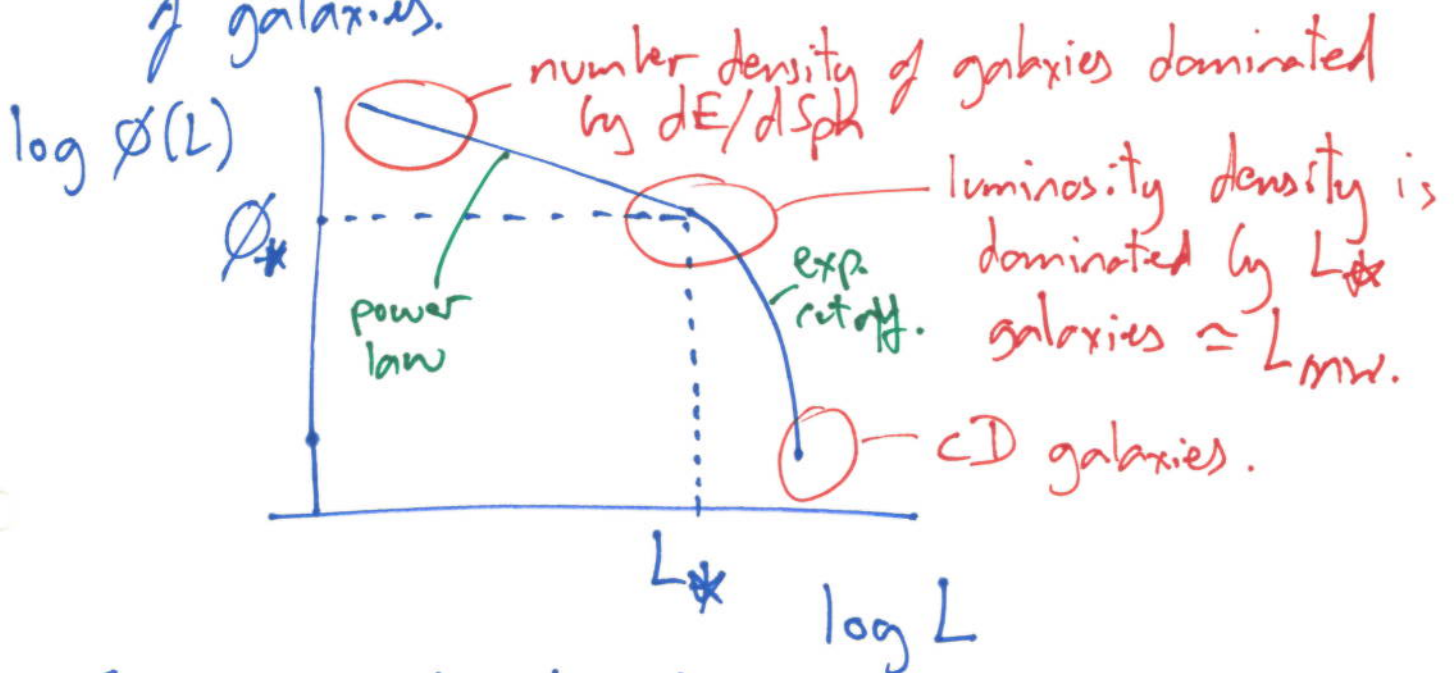 of galaxies.
number density of galaxies dominated
by dE/dSph
log Ø(L)
luminosity density is
dominated by L*
galaxies ≃ Lmw.
Ø*
exp.
cutoff.
power
law
cD galaxies.
L*
log L